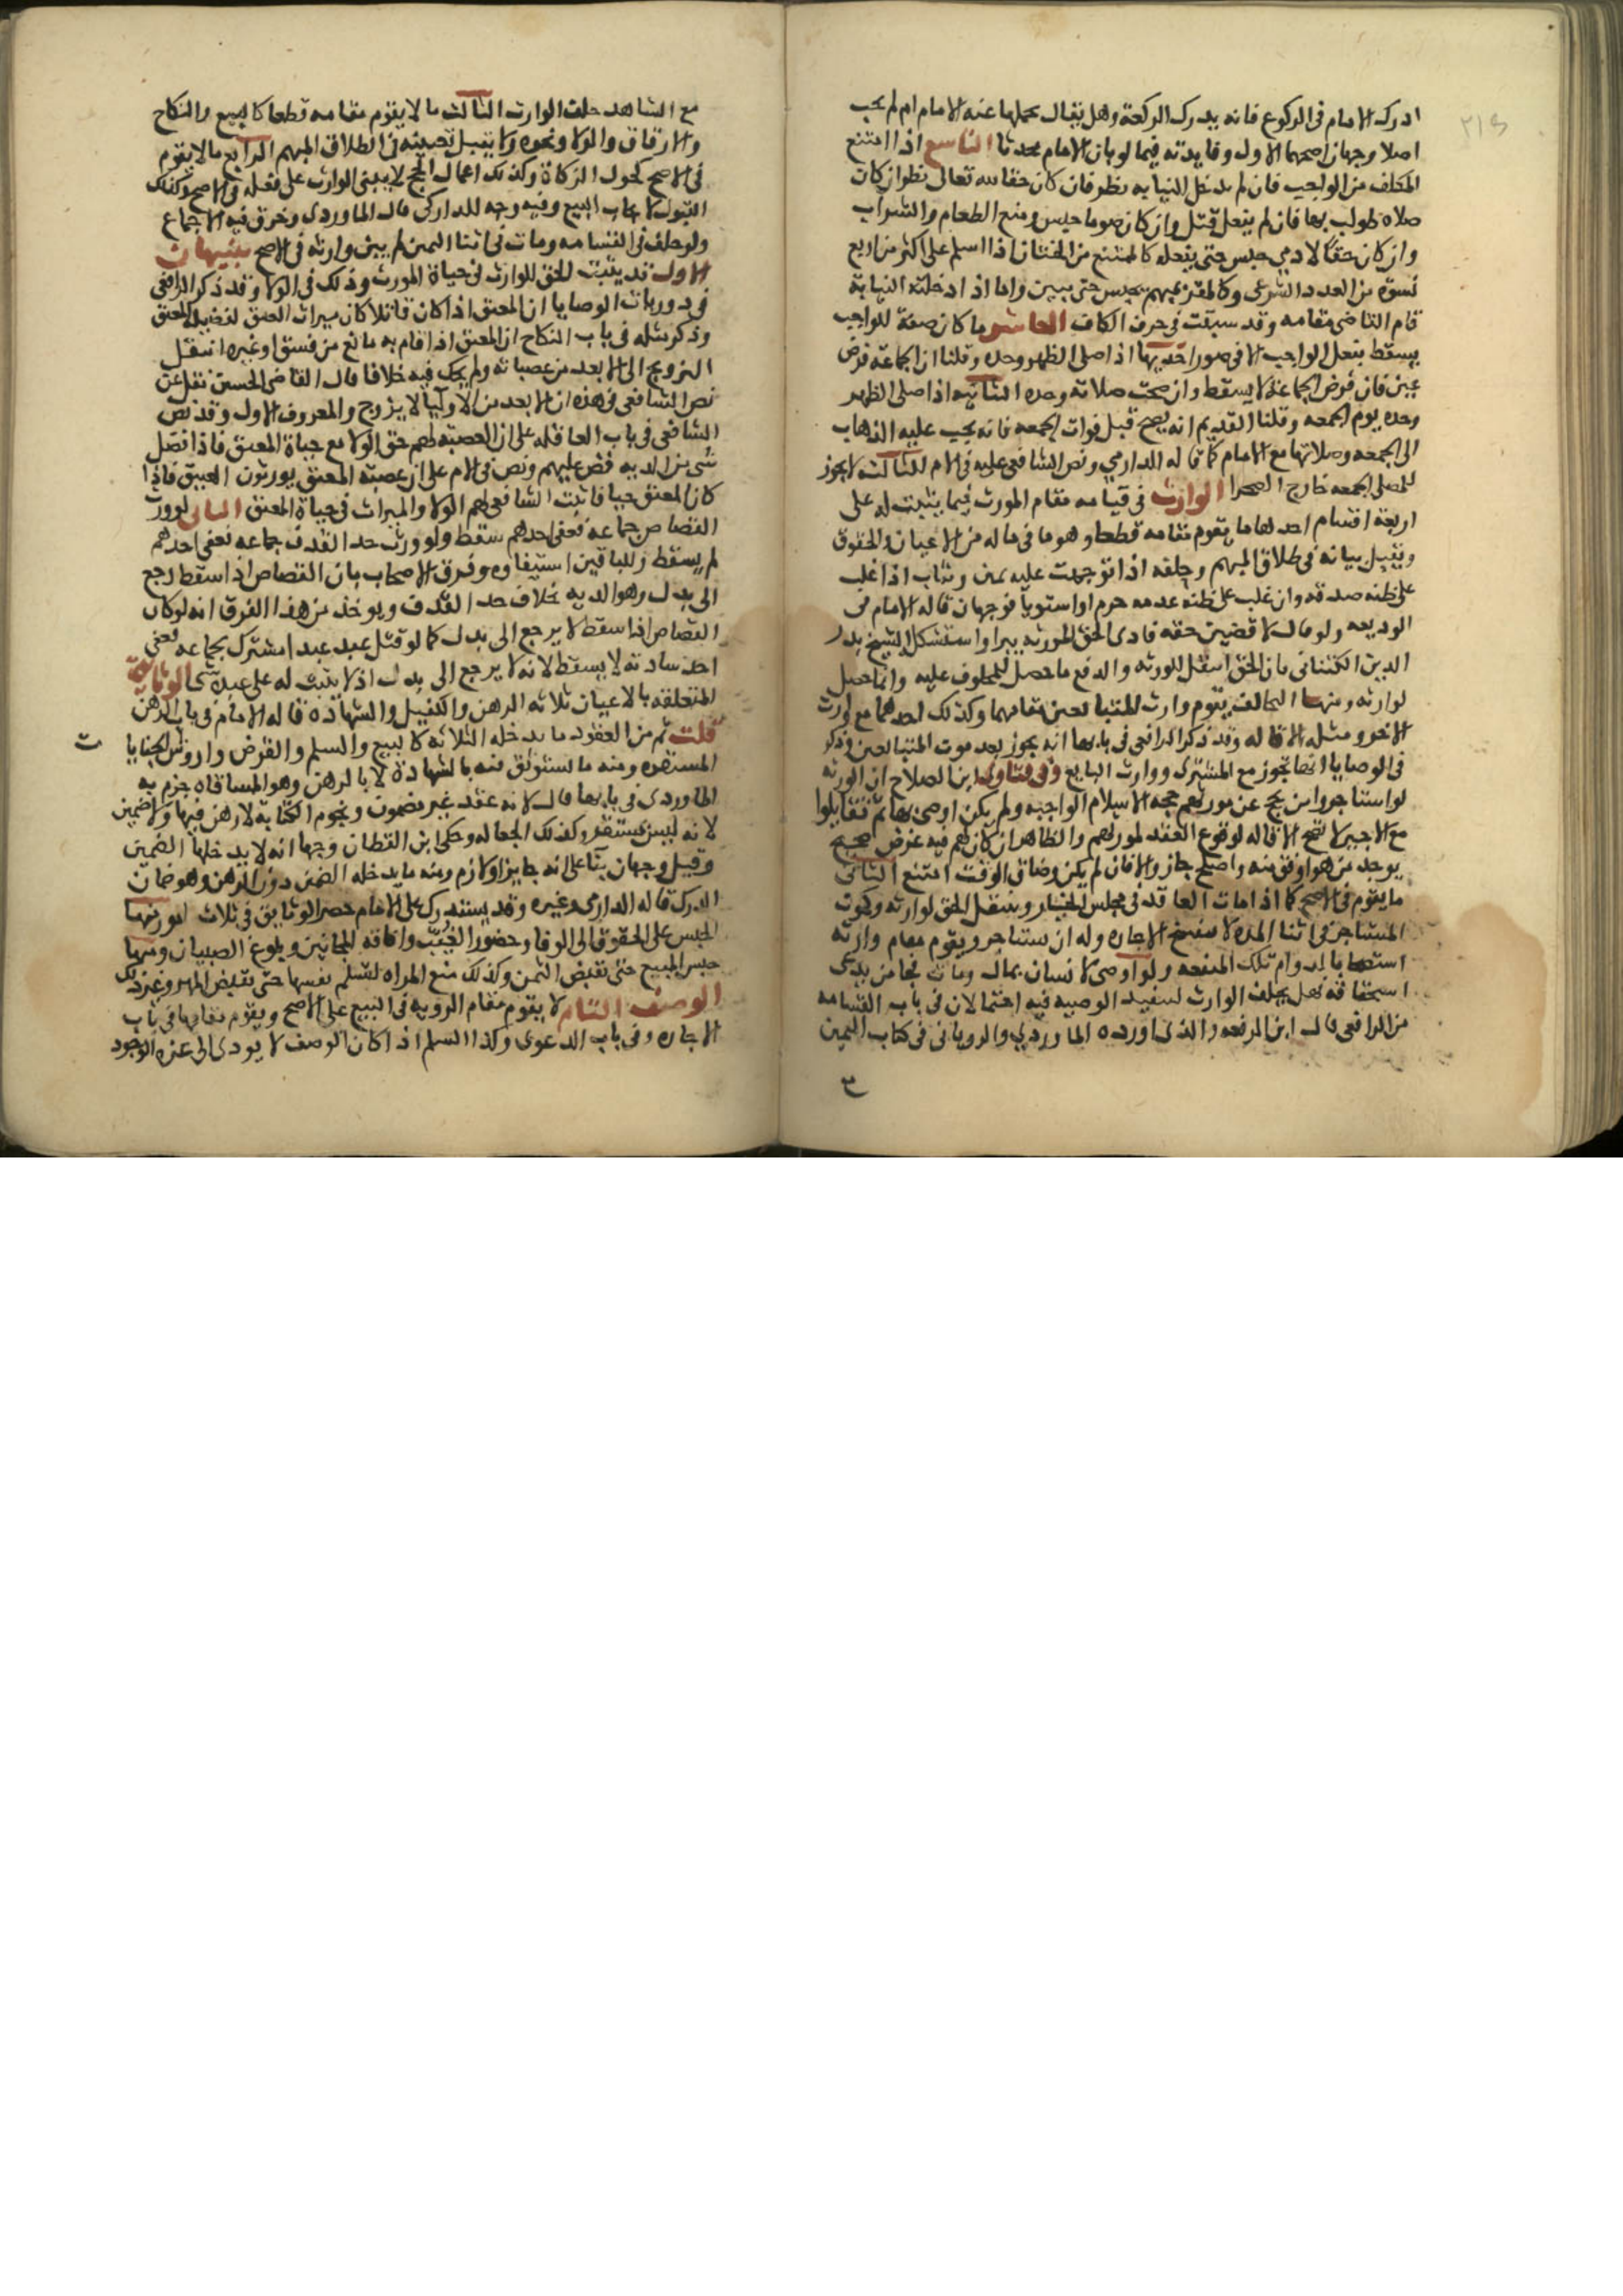 ادرك الامام فى الركوع فانه يدرك الركعة وهل يقال يحملها عنه الامام ام لم يجب
اصلا وجهان اصحهما الاول وفايدته فيما لو بان الامام محدثا التاسع اذا امتنع
المكلف من الواجب فان لم تدخل النيابه نظر فان كان حقا لله تعالى نظر ان كان
صلاة طولب بها فان لم يفعل قتل وان كان صوما حبس ومنع الطعام والشراب
وان كان حقا لادمى حبس حتى يفعله كالممتنع من اختيار اذا اسلم على اكثر من اربع
نسوة من العدد الشرعى وكالمقر بمبهم يحبس حتى يبين واما اذا دخلته النيابة
قام القاضى مقامه وقد سبقت فى حرف الكاف العاشر ما كان صفة للواجب
يسقط بفعل الواجب الا فى صور احديها اذا صلى الظهر وحده وقلنا ان الجماعة فرض
عين فان فرض الجماعة لا يسقط وان صحت صلاته وحده الثانيه اذا صلى الظهر
وحده يوم الجمعه وقلنا القديم انه يصح قبل فوات الجمعه فانه يجب عليه الذهاب
الى الجمعه وصلاتها مع الامام كما قاله الدارمى ونص الشافعى عليه فى الام الثالثه لا يجوز
للمصلى الجمعه خارج الصحرا الوارث فى قيامه مقام المورث فيما يثبت له على
اربعة اقسام احدها ما يقوم مقامه قطعا وهو ما فى ماله من الاعيان والحقوق
ويقبل بيانه فى طلاق المبهم وحلفه اذا توجهت عليه يمين ويثاب اذا غلب
على ظنه صدقه وان غلب على ظنه عدمه حرم او استويا فوجهان قاله الامام فى
الوديعه ولو قال لا قضين حقه فادى الحق لمورثه يبرا واستشكل الشيخ بدر
الدين الكتنانى بان الحق انتقل للورثه والدفع ما حصل للمحلوف عليه وانما حصل
لوارثه ومنها التحالف يقوم وارث المتبايعين مقامهما وكذلك احدهما مع لورث
الاخر ومثله الاقاله وقد ذكر الرافعى فى بابها انه يجوز بعد موت المتبايعين وذكر
فى الوصايا انها تجوز مع المشترى ووارث البايع وفى فتاوى ابن الصلاح ان الورثه
لو استاجروا من يحج عن مورثهم حجة الاسلام الواجبه ولم يكن اوصى بها ثم تقايلوا
مع الاجير لا تصح الاقاله لوقوع العقد لمورثهم والظاهر ان كان لهم فيه غرض صحيح
يوجد من هو اوفق منه واصلح جاز والا فان لم يكن وضاق الوقت امتنع الثانى
ما يقوم فى الاصح كما اذا مات العاقد فى مجلس الخيار وينتقل الحق لوارثه ولموت
المستاجر فى اثنا المدة لا تنفسخ الاجاره وله ان يستاجر ويقوم مقام وارثه
استصحابا لدوام تلك المنفعه ولو اوصى لانسان بمال ومات فجا من يدعى
استحقاقه فهل يحلف الوارث لتنفيذ الوصيه فيه احتمالان فى باب القسامه
من الرافعى قال ابن الرفعه والذى اورده الماوردى والرويانى فى كتاب اليمين
مع الشاهد حلف الوارث الثالث ما لا يقوم مقامه قطعا كالبيع والنكاح
والارقاق والولا ونحوه ولا يقبل تعيينه فى الطلاق المبهم الرابع ما لا يقوم
فى الاصح كحول الزكاة وكذلك اعمال الحج لا يبنى الوارث على فعله فى الاصح وكذلك
القبول لايجاب البيع وفيه وجه للداركى قال الماوردى وخرق فيه الاجماع
ولو حلف فى القسامه ومات فى اثنا اليمين لم يبن وارثه فى الاصح تنبيهات
الاول قد يثبت الحق للوارث فى حياة المورث وذلك فى الولا وقد ذكر الرافعى
فى دوريات الوصايا ان المعتق اذا كان قاتلا كان ميراث العتيق لعصبة المعتق
وذكر مثله فى باب النكاح ان المعتق اذا قام به مانع من فسق او غيره انتقل
التزويج الى الابعد من عصباته ولم يحك فيه خلافا قال القاضى الحسين نقل عن
نص الشافعى فى هذه ان الابعد من الاوليا لا يزوج والمعروف الاول وقد نص
الشافعى فى باب العاقله على ان العصبه لهم حق الولا مع حياة المعتق فاذا فضل
شى من الديه فض عليهم ونص فى الام على ان عصبة المعتق يورثون العتيق فاذا
كان المعتق حيا فاثبت الشافعى لهم الولا والميراث فى حياة المعتق الثانى لو ورث
القصاص جماعه فعفى احدهم سقط ولو ورث حد القذف جماعه فعفى احدهم
لم يسقط وللباقين استيفاوه وفرق الاصحاب بان القصاص اذا سقط رجع
الى بدل وهو الديه بخلاف حد القذف ويوخذ من هذا الفرق انه لو كان
القصاص اذا سقط لا يرجع الى بدل كما لو قتل عبد عبدا مشترك بجماعه فعفى
احد ساداته لا يسقط لانه لا يرجع الى بدل اذ لا يثبت له على عبده شى الوثايق
المتعلقه بالاعيان ثلاثه الرهن والكفيل والشهادة قاله الامام فى باب الرهن
قلت ثم من العقود ما يدخله الثلاثه كالبيع والسلم والقرض واروش الجنايا
المستقره ومنه ما يستوثق منه بالشهادة لا بالرهن وهو المساقاه جزم به
الماوردى فى بابها قال لانه عقد غير مضمون ونجوم الكتابة لا رهن فيها ولا ضمين
لانه ليس بمستقر وكذلك الجعاله وحكى ابن القطان وجها انه لا يدخلها الضمين
وقيل وجهان بنا على انه جايز او لازم ومنه ما يدخله الضمين دون الرهن وهو ضمان
الدرك قاله الدارمى وغيره وقد يستدرك على الامام حصر الوثايق فى ثلاث امور منها
الحبس على الحقوق الى الوفا وحضور الغيب وافاقه المجانين وبلوغ الصبيان ومنها
حبس المبيع حتى يقبض الثمن وكذلك منع المراه لتسلم نفسها حتى تقبض المهر وغير ذلك
الوصف التام لا يقوم مقام الرويه فى البيع على الاصح ويقوم مقامها فى باب
الاجاره وفى باب الدعوى وكذا السلم اذا كان الوصف لا يودى الى عزة الوجود